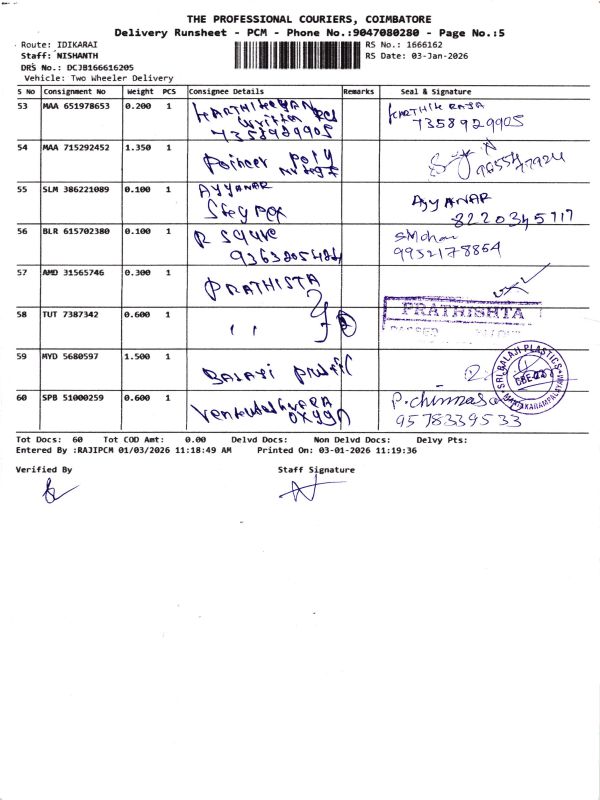 THE PROFESSIONAL COURIERS, COIMBATORE
Delivery Runsheet - PCM - Phone No.:9047080280 - Page No.:5
Route: IDIKARAI
RS No.: 1666162
Staff: NISHANTH
RS Date: 03-Jan-2026
DRS No.: DCJB166616205
Vehicle: Two Wheeler Delivery
S No Consignment No Weight PCS Consignee Details Remarks Seal & Signature
53 MAA 651978653 0.200 1 KARTHIKEYAN KARTHIK RAJA
7358929905 7358929905
54 MAA 715292452 1.350 1 Poincer poly
55 SLM 386221089 0.100 1 AYYANAR AyyANAR
8220345717
56 BLR 615702380 0.100 1 R square S Mohan
9952178864
57 AMD 31565746 0.300 1 PRATHISTA
58 TUT 7387342 0.600 1 " 2 PRATHISHTA
PASSED
59 MYD 5680597 1.500 1 BALAJI SRI BALAJI PLASTICS
60 SPB 51000259 0.600 1 P. chinnasa
9578339533
Tot Docs: 60 Tot COD Amt: 0.00 Delvd Docs: Non Delvd Docs: Delvy Pts:
Entered By :RAJIPCM 01/03/2026 11:18:49 AM Printed On: 03-01-2026 11:19:36
Verified By Staff Signature